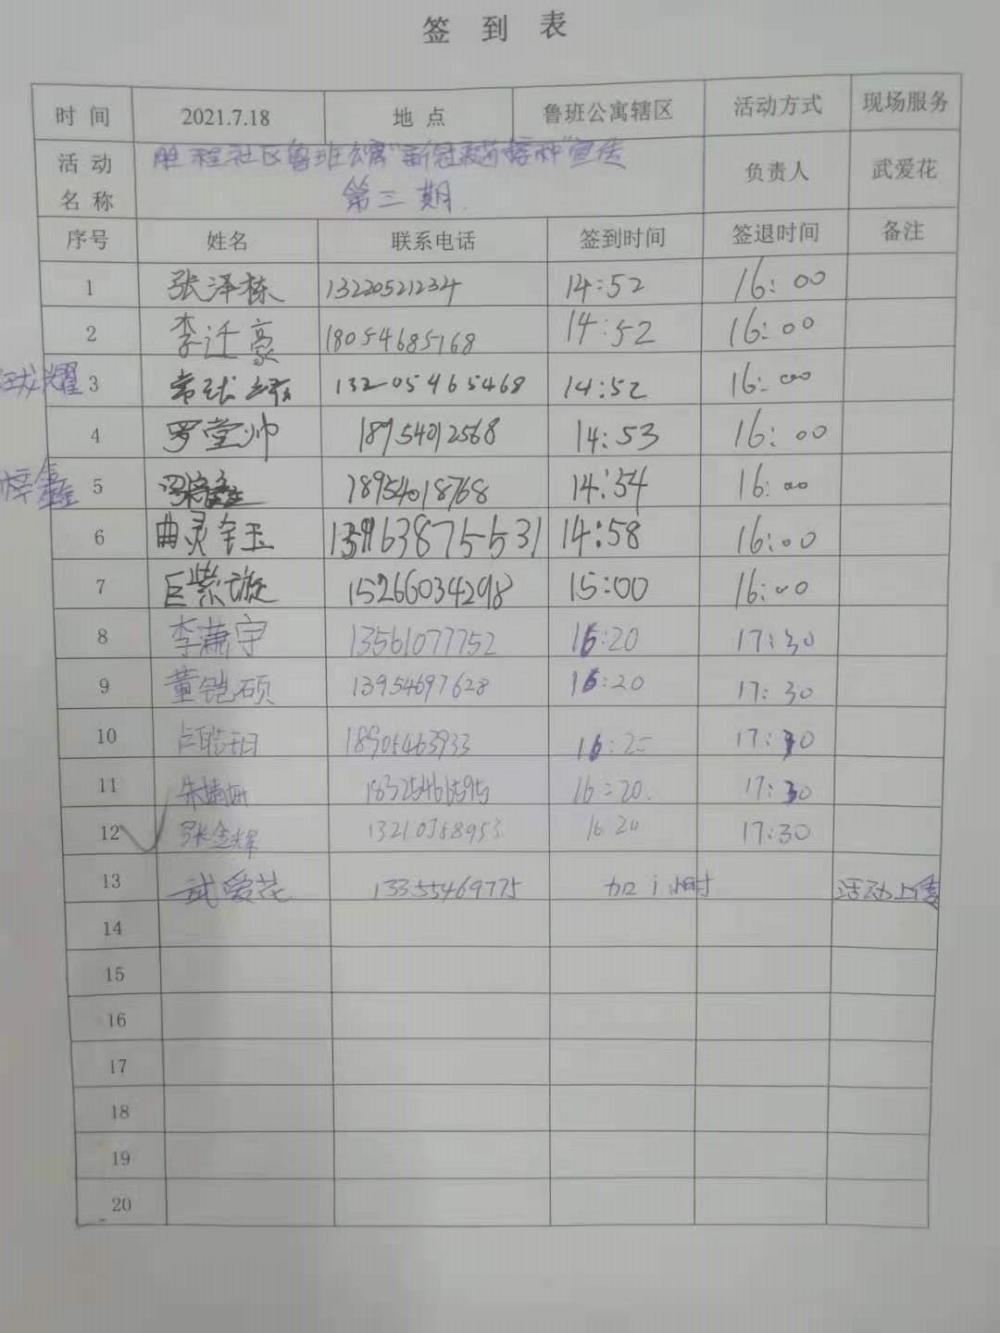 签 到 表
时 间 2021.7.18 地 点 鲁班公寓辖区 活动方式 现场服务
活 动 名 称 胜程社区鲁班公寓"新冠疫苗接种"宣传 负责人 武爱花
第三期.
序号 姓名 联系电话 签到时间 签退时间 备注
1 张泽栋 13220521234 14:52 16:00
2 李迁豪 18054685168 14:52 16:00
3 常 13205465468 14:52 16:00
4 罗堂帅 18954012568 14:53 16:00
梓鑫 5 18954018768 14:54 16:00
6 曲灵钰玉 14:58 16:00
7 巨紫璇 15266034298 15:00 16:00
8 李潇宇 13561077752 16:20 17:30
9 董铠硕 13954697628 16:20 17:30
10 18905463933 16:20 17:30
11 朱婧妍 16:20. 17:30
12 张金辉 16 20 17:30
13 武爱花 13355469775 加1小时 活动上传
14
15
16
17
18
19
20